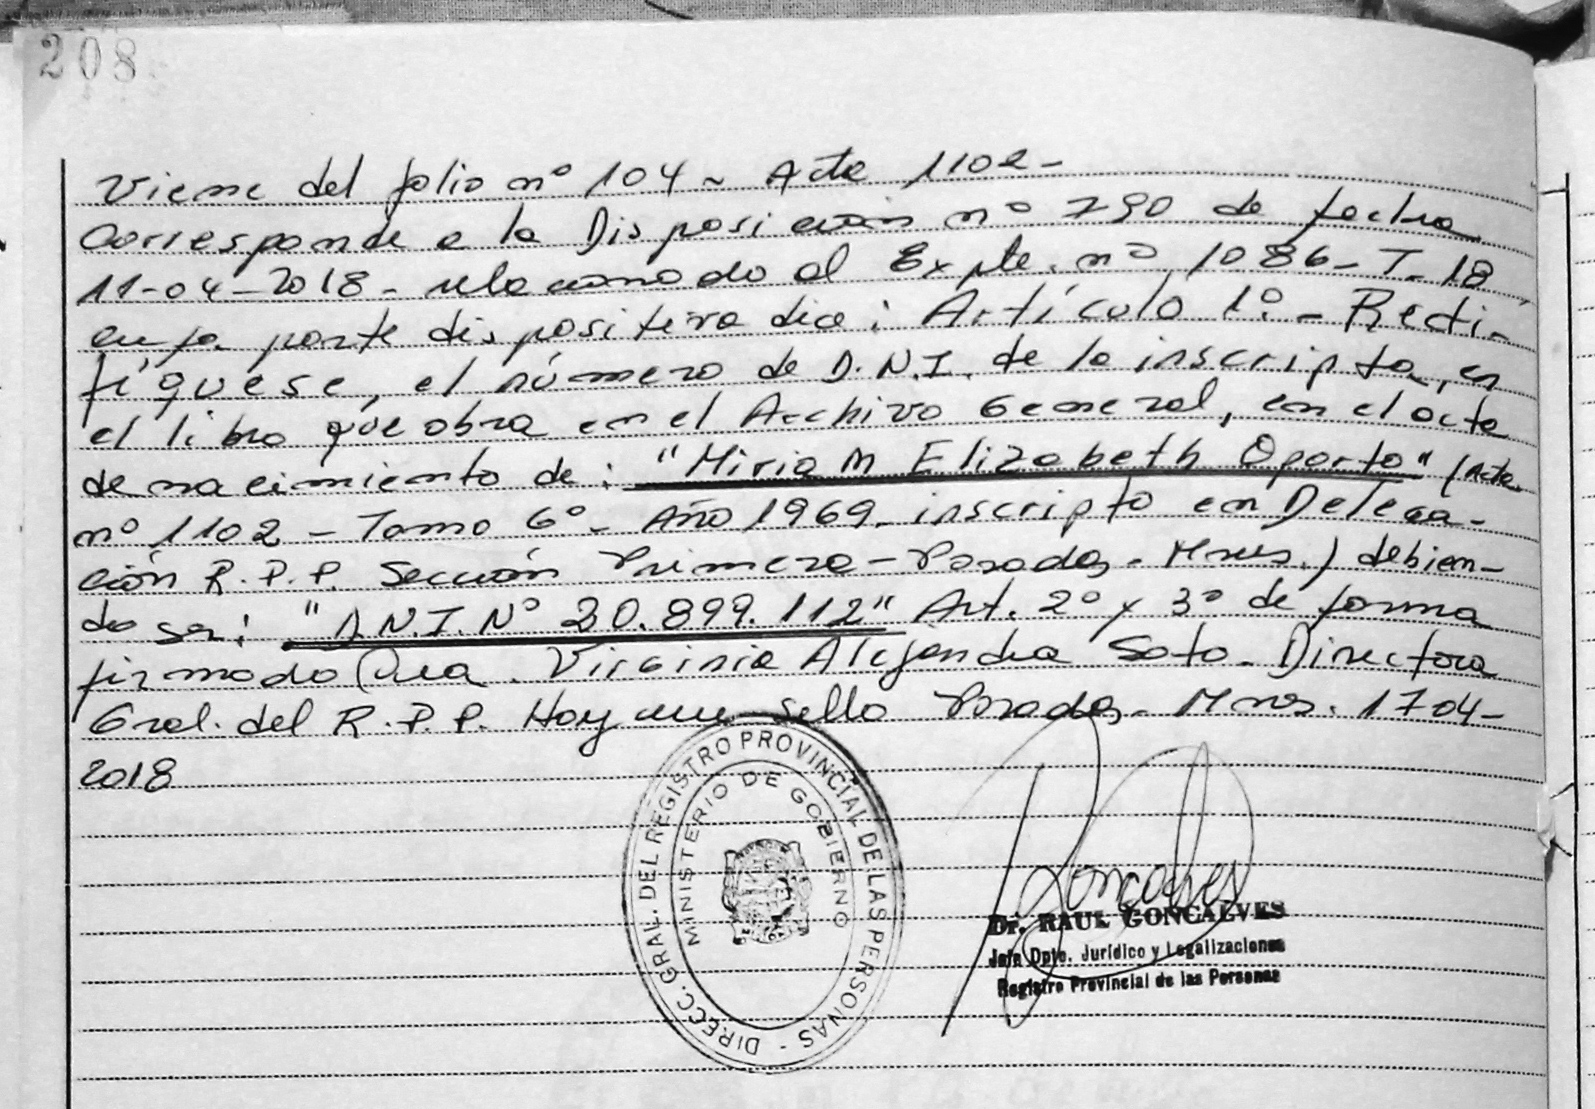 208
Viene del folio nº 104 - Acta 1102-
Corresponde a la Disposición nº 790 de fecha
11-04-2018- relacionado al Expte. nº 1086-T-18
cuya parte dispositiva dice: Artículo 1º.- Recti-
fíquese, el número de D.N.I. de la inscripta, en
el libro que obra en el Archivo General, en el acta
de nacimiento de: "Miriam Elizabeth Oporto" (Acta
nº 1102 - Tomo 6º- Año 1969- inscripto en Delega-
ción R.P.P. Sección Primera - Posadas - Mnes.) debien-
do ser: "D.N.I. Nº 20.899.112" Art. 2º y 3º de forma
firmado Dra. Virginia Alejandra Soto - Directora
Gral. del R.P.P. Hay un sello Posadas - Mnes. 17-04-
2018
DIRECC. GRAL. DEL REGISTRO PROVINCIAL DE LAS PERSONAS -
MINISTERIO DE GOBIERNO
Dr. RAUL GONCALVES
Jefe Dpto. Jurídico y Legalizaciones
Registro Provincial de las Personas